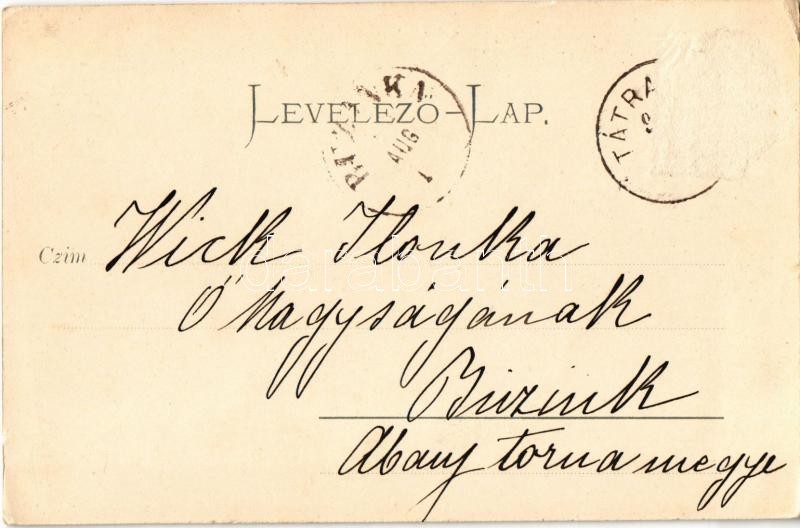 LEVELEZŐ-LAP.
TÁTRA
AUG
1
Czim Wick Ilonka
Ő Nagyságának
Búzink
Abauj torna megye
darabanth